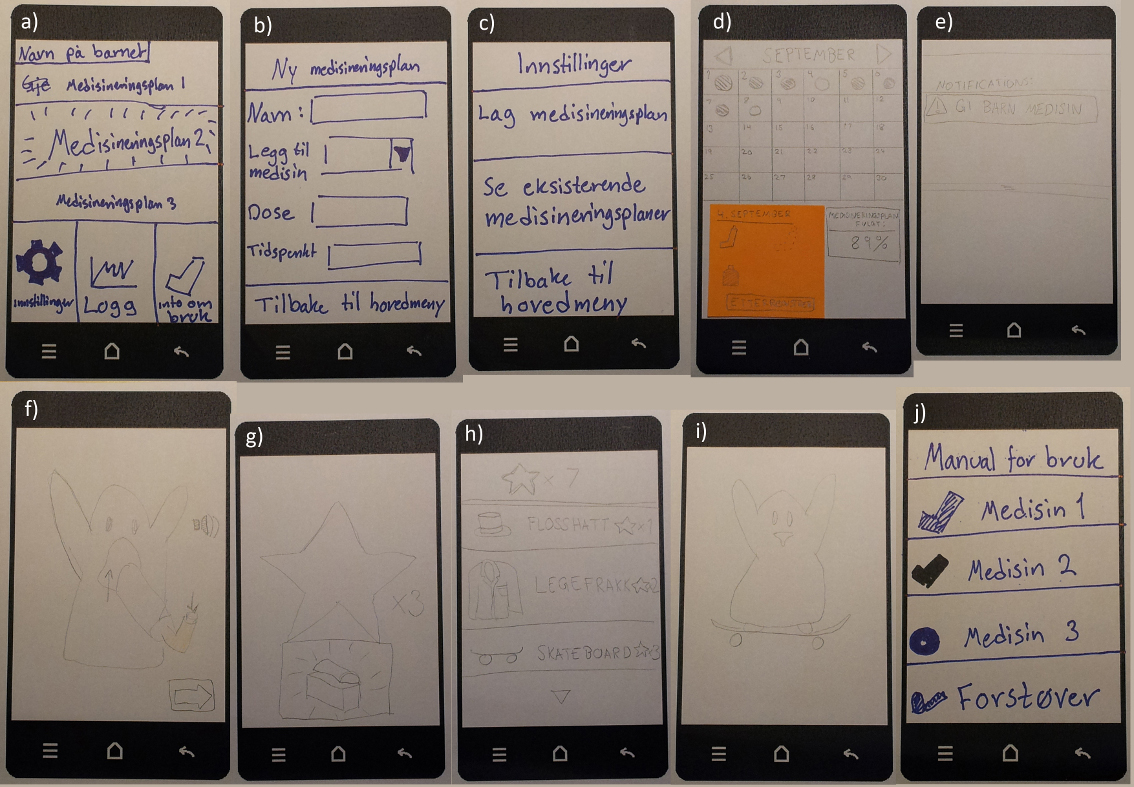 a)
Navn på barnet
Gje Medisineringsplan 1
Medisineringsplan 2
Medisineringsplan 3
Innstillinger
Logg
Info om
bruk
b)
Ny medisineringsplan
Navn:
Legg til
medisin
Dose
Tidspunkt
Tilbake til hovedmeny
c)
Innstillinger
Lag medisineringsplan
Se eksisterende
medisineringsplaner
Tilbake til
hovedmeny
d)
SEPTEMBER
1 2 3 4 5 6
7 8 9 10 11 12
13 14 15 16 17 18
19 20 21 22 23 24
25 26 27 28 29 30
4. SEPTEMBER
MEDISINERINGSPLAN
FULGT:
89%
e)
NOTIFICATIONS:
GI BARN MEDISIN
f)
g)
x3
h)
x 7
FLOSSHATT x1
LEGEFRAKK x2
SKATEBOARD x3
i)
j)
Manual for bruk
Medisin 1
Medisin 2
Medisin 3
Forstøver